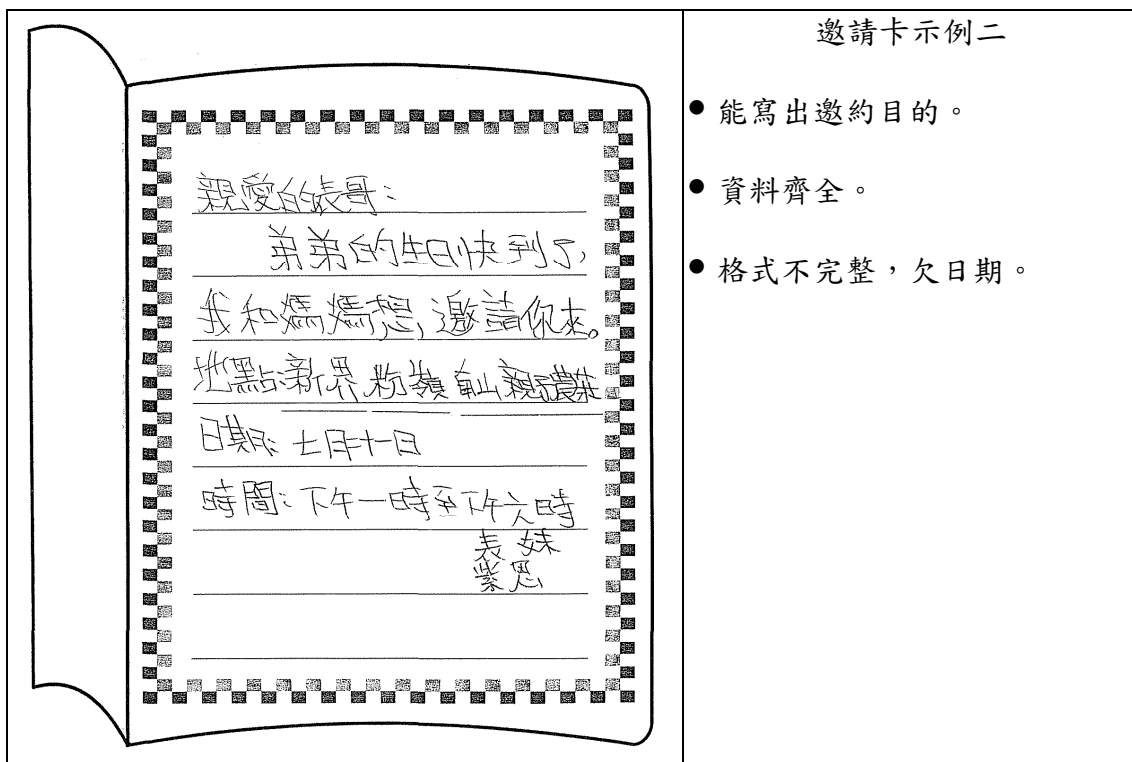 親愛的表哥：
弟弟的生日快到了，
我和媽媽想邀請你來。
地點：新界粉嶺
日期：七月十一日
時間：下午一時至下午六時
表妹
紫思
邀請卡示例二
● 能寫出邀約目的。
● 資料齊全。
● 格式不完整，欠日期。